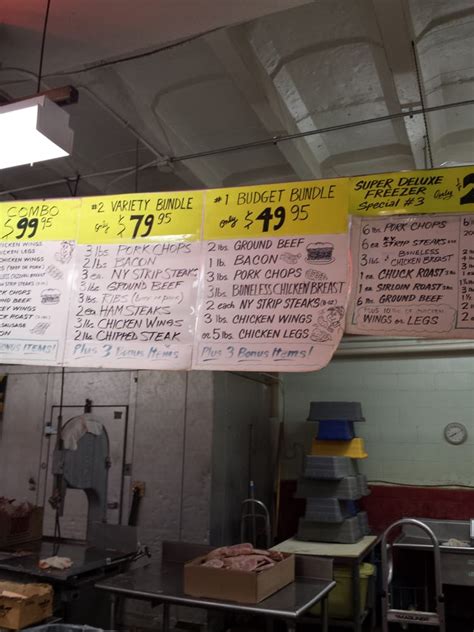 COMBO
$99.95
CHICKEN WINGS
BONUS ITEMS!
#2 VARIETY BUNDLE
only $79.95
3 lbs. PORK CHOPS
2 lbs. BACON
3 ea. NY STRIP STEAKS
3 lbs. GROUND BEEF
3 lbs. RIBS
2 ea. HAM STEAKS
3 lbs. CHICKEN WINGS
2 lbs. CHIPPED STEAK
Plus 3 Bonus Items!
#1 BUDGET BUNDLE
only $49.95
2 lbs. GROUND BEEF
1 lb. BACON
3 lbs. PORK CHOPS
3 lbs. BONELESS CHICKEN BREAST
2 each NY STRIP STEAKS
3 lbs. CHICKEN WINGS
or 5 lbs. CHICKEN LEGS
Plus 3 Bonus Items!
SUPER DELUXE
FREEZER
Special #3 only
6 lbs. PORK CHOPS
6 ea. STRIP STEAKS
BONELESS
CHICKEN BREAST
1 ea. CHUCK ROAST
1 ea. SIRLOIN ROAST
6 lbs. GROUND BEEF
WINGS or LEGS